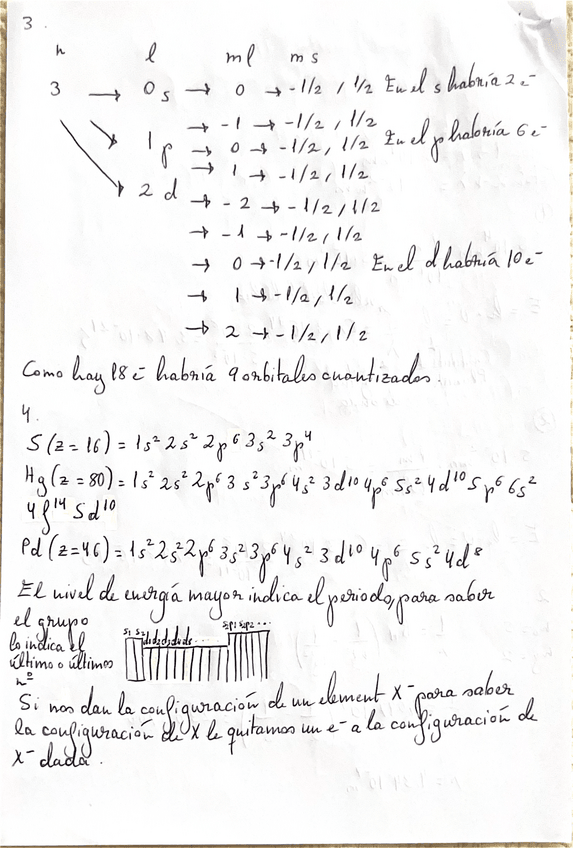 3.
n l ml ms
3 → 0 s → 0 → -1/2, 1/2 En el s habría 2 e-
→ -1 → -1/2, 1/2
1 p → 0 → -1/2, 1/2 En el p habría 6 e-
→ 1 → -1/2, 1/2
2 d → -2 → -1/2, 1/2
→ -1 → -1/2, 1/2
→ 0 → -1/2, 1/2 En el d habría 10 e-
→ 1 → -1/2, 1/2
→ 2 → -1/2, 1/2
Como hay 18 e- habría 9 orbitales cuantizados.
4.
S (z=16) = 1s² 2s² 2p⁶ 3s² 3p⁴
Hg (z=80) = 1s² 2s² 2p⁶ 3s² 3p⁶ 4s² 3d¹⁰ 4p⁶ 5s² 4d¹⁰ 5p⁶ 6s²
4f¹⁴ 5d¹⁰
Pd (z=46) = 1s² 2s² 2p⁶ 3s² 3p⁶ 4s² 3d¹⁰ 4p⁶ 5s² 4d⁸
El nivel de energía mayor indica el periodo, para saber
el grupo
lo indica el
último o últimos
nº
s1 s2 d1 d2 d3 d4 d5 ... s2p1 s2p2 ...
Si nos dan la configuración de un element X⁻ para saber
la configuración de X le quitamos un e- a la configuración de
X⁻ dada.